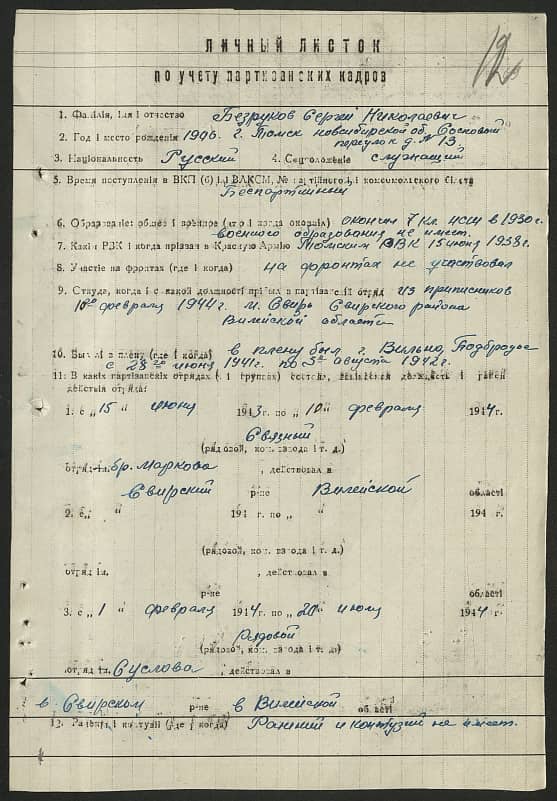 12
ЛИЧНЫЙ ЛИСТОК
по учету партизанских кадров
1. Фамілія, імя і отчество Безруков Сергей Николаевич
2. Год і место рождения 1906 г. Томск новсибирской об. Сосковый
переулок д. № 13.
3. Національность Русский 4. Соцположение служащий
5. Время поступления в ВКП (б) і) ВЛКСМ, № партійного і, комсомольского білета
Беспартийный
6. Образование: общее і военное (что і когда окончіл) окончил 7 кл. НСШ в 1930г.
военного образования не имеет.
7. Какім РВК і когда прізван в Красную Армію Томским РВК 15 июня 1938г.
8. Участіе на фронтах (где і когда) на фронтах не участвовал
9. Откуда, когда і с какой должності прібыл в партізанскій отряд из приписников
10го февраля 1944г. м. Свирь Свирского района
Вилейской области
10. Был лі в плену (где і когда) в плену был г. Вильно, Подбродье
с 28го июня 1941г. по 5е августа 1942г.
11. В какіх партізанскіх отрядах ( і группах) состоял, должность і район
действія отряда:
1. с „ 15 “ июня 1943г. по „ 10 “ февраля 1944г.
Связный
(рядовой, ком. взвода і т. д.)
отряд ім. бр. Маркова , действовал в
Свирский р-не Вилейской області
2. с „ “ 194 г. по „ “ 194 г.
(рядовой, ком. взвода і т. д.)
отряд ім. , действовал в
р-не області
3. с „ 1 “ февраля 1944г. по „ 20 “ июля 1944г.
Рядовой
(рядовой, ком. взвода і т. д.)
отряд ім. Суслова , действовал в
в Свирском р-не в Вилейской області
12. Раненія і контузіі (где і когда) Ранений и контузий не имеет.